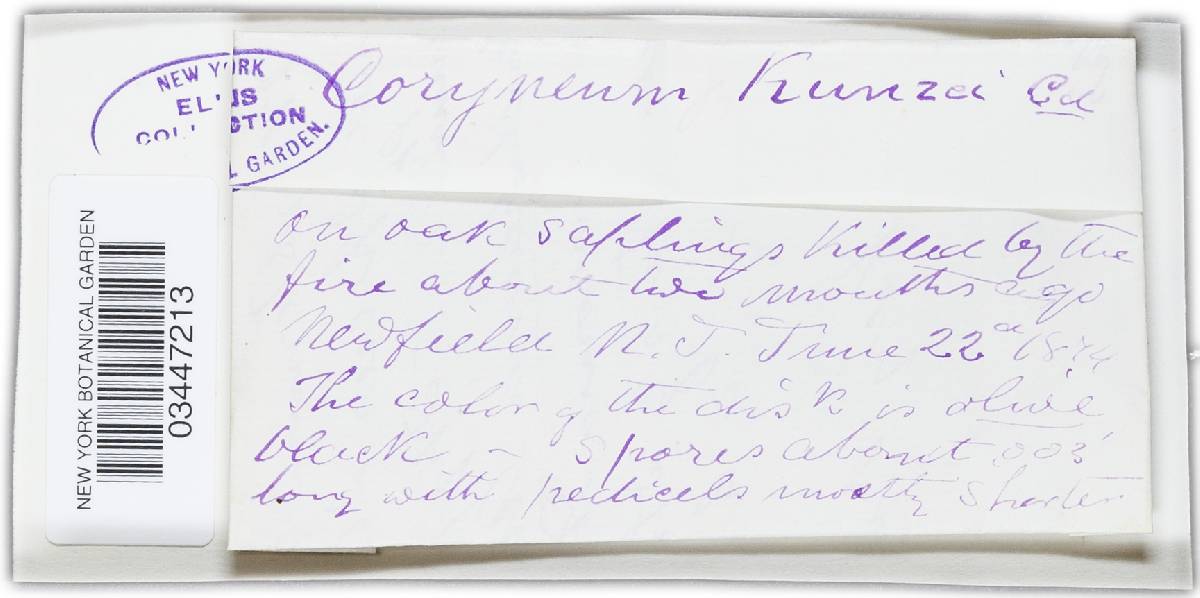 NEW YORK
ELLIS
COLLECTION
L GARDEN.
Coryneum Kunzei Cd
on oak saplings killed by the
fire about two months ago
Newfield N. J. June 22d 1874
The color of the disk is olive
black - spores about .003'
long with pedicels mostly shorter
NEW YORK BOTANICAL GARDEN
03447213